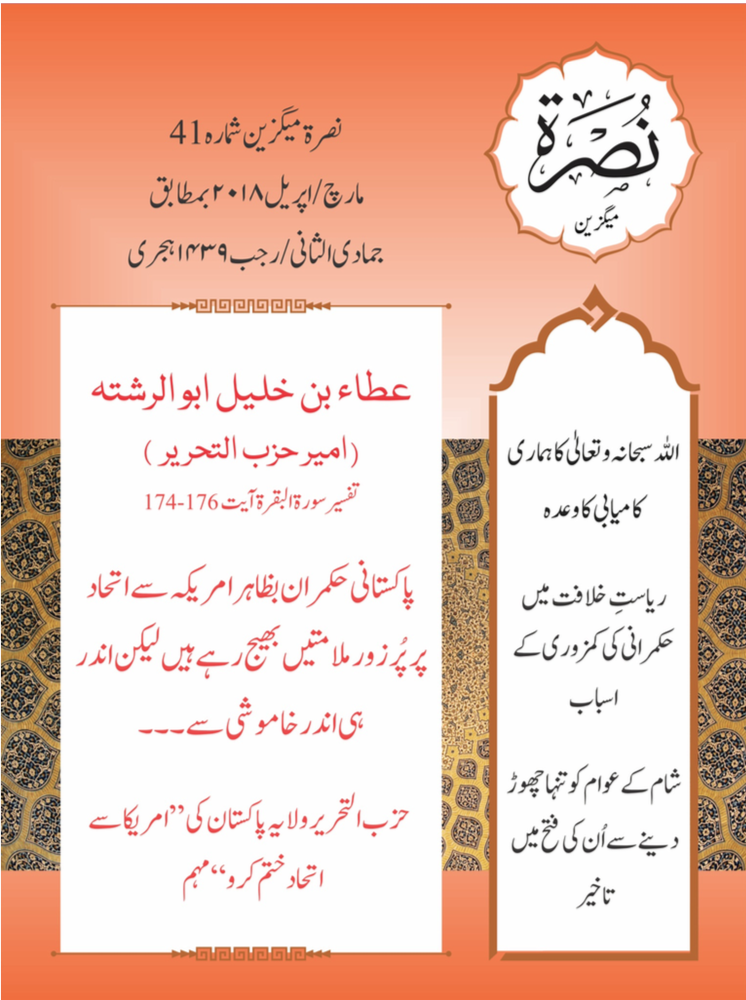 نُصرۃ
میگزین
نصرۃ میگزین شمارہ 41
مارچ/اپریل ۲۰۱۸ بمطابق
جمادی الثانی/رجب ۱۴۳۹ہجری
اللہ سبحانہ وتعالیٰ کا ہماری
کامیابی کا وعدہ
ریاستِ خلافت میں
حکمرانی کی کمزوری کے
اسباب
شام کے عوام کو تنہا چھوڑ
دینے سے اُن کی فتح میں
تاخیر
عطاء بن خلیل ابوالرشتہ
(امیر حزب التحریر)
تفسیر سورۃ البقرۃ آیت 176-174
پاکستانی حکمران بظاہر امریکہ سے اتحاد
پر پُرزور ملامتیں بھیج رہے ہیں لیکن اندر
ہی اندر خاموشی سے۔۔۔
حزب التحریر ولایہ پاکستان کی ”امریکا سے
اتحاد ختم کرو“ مہم